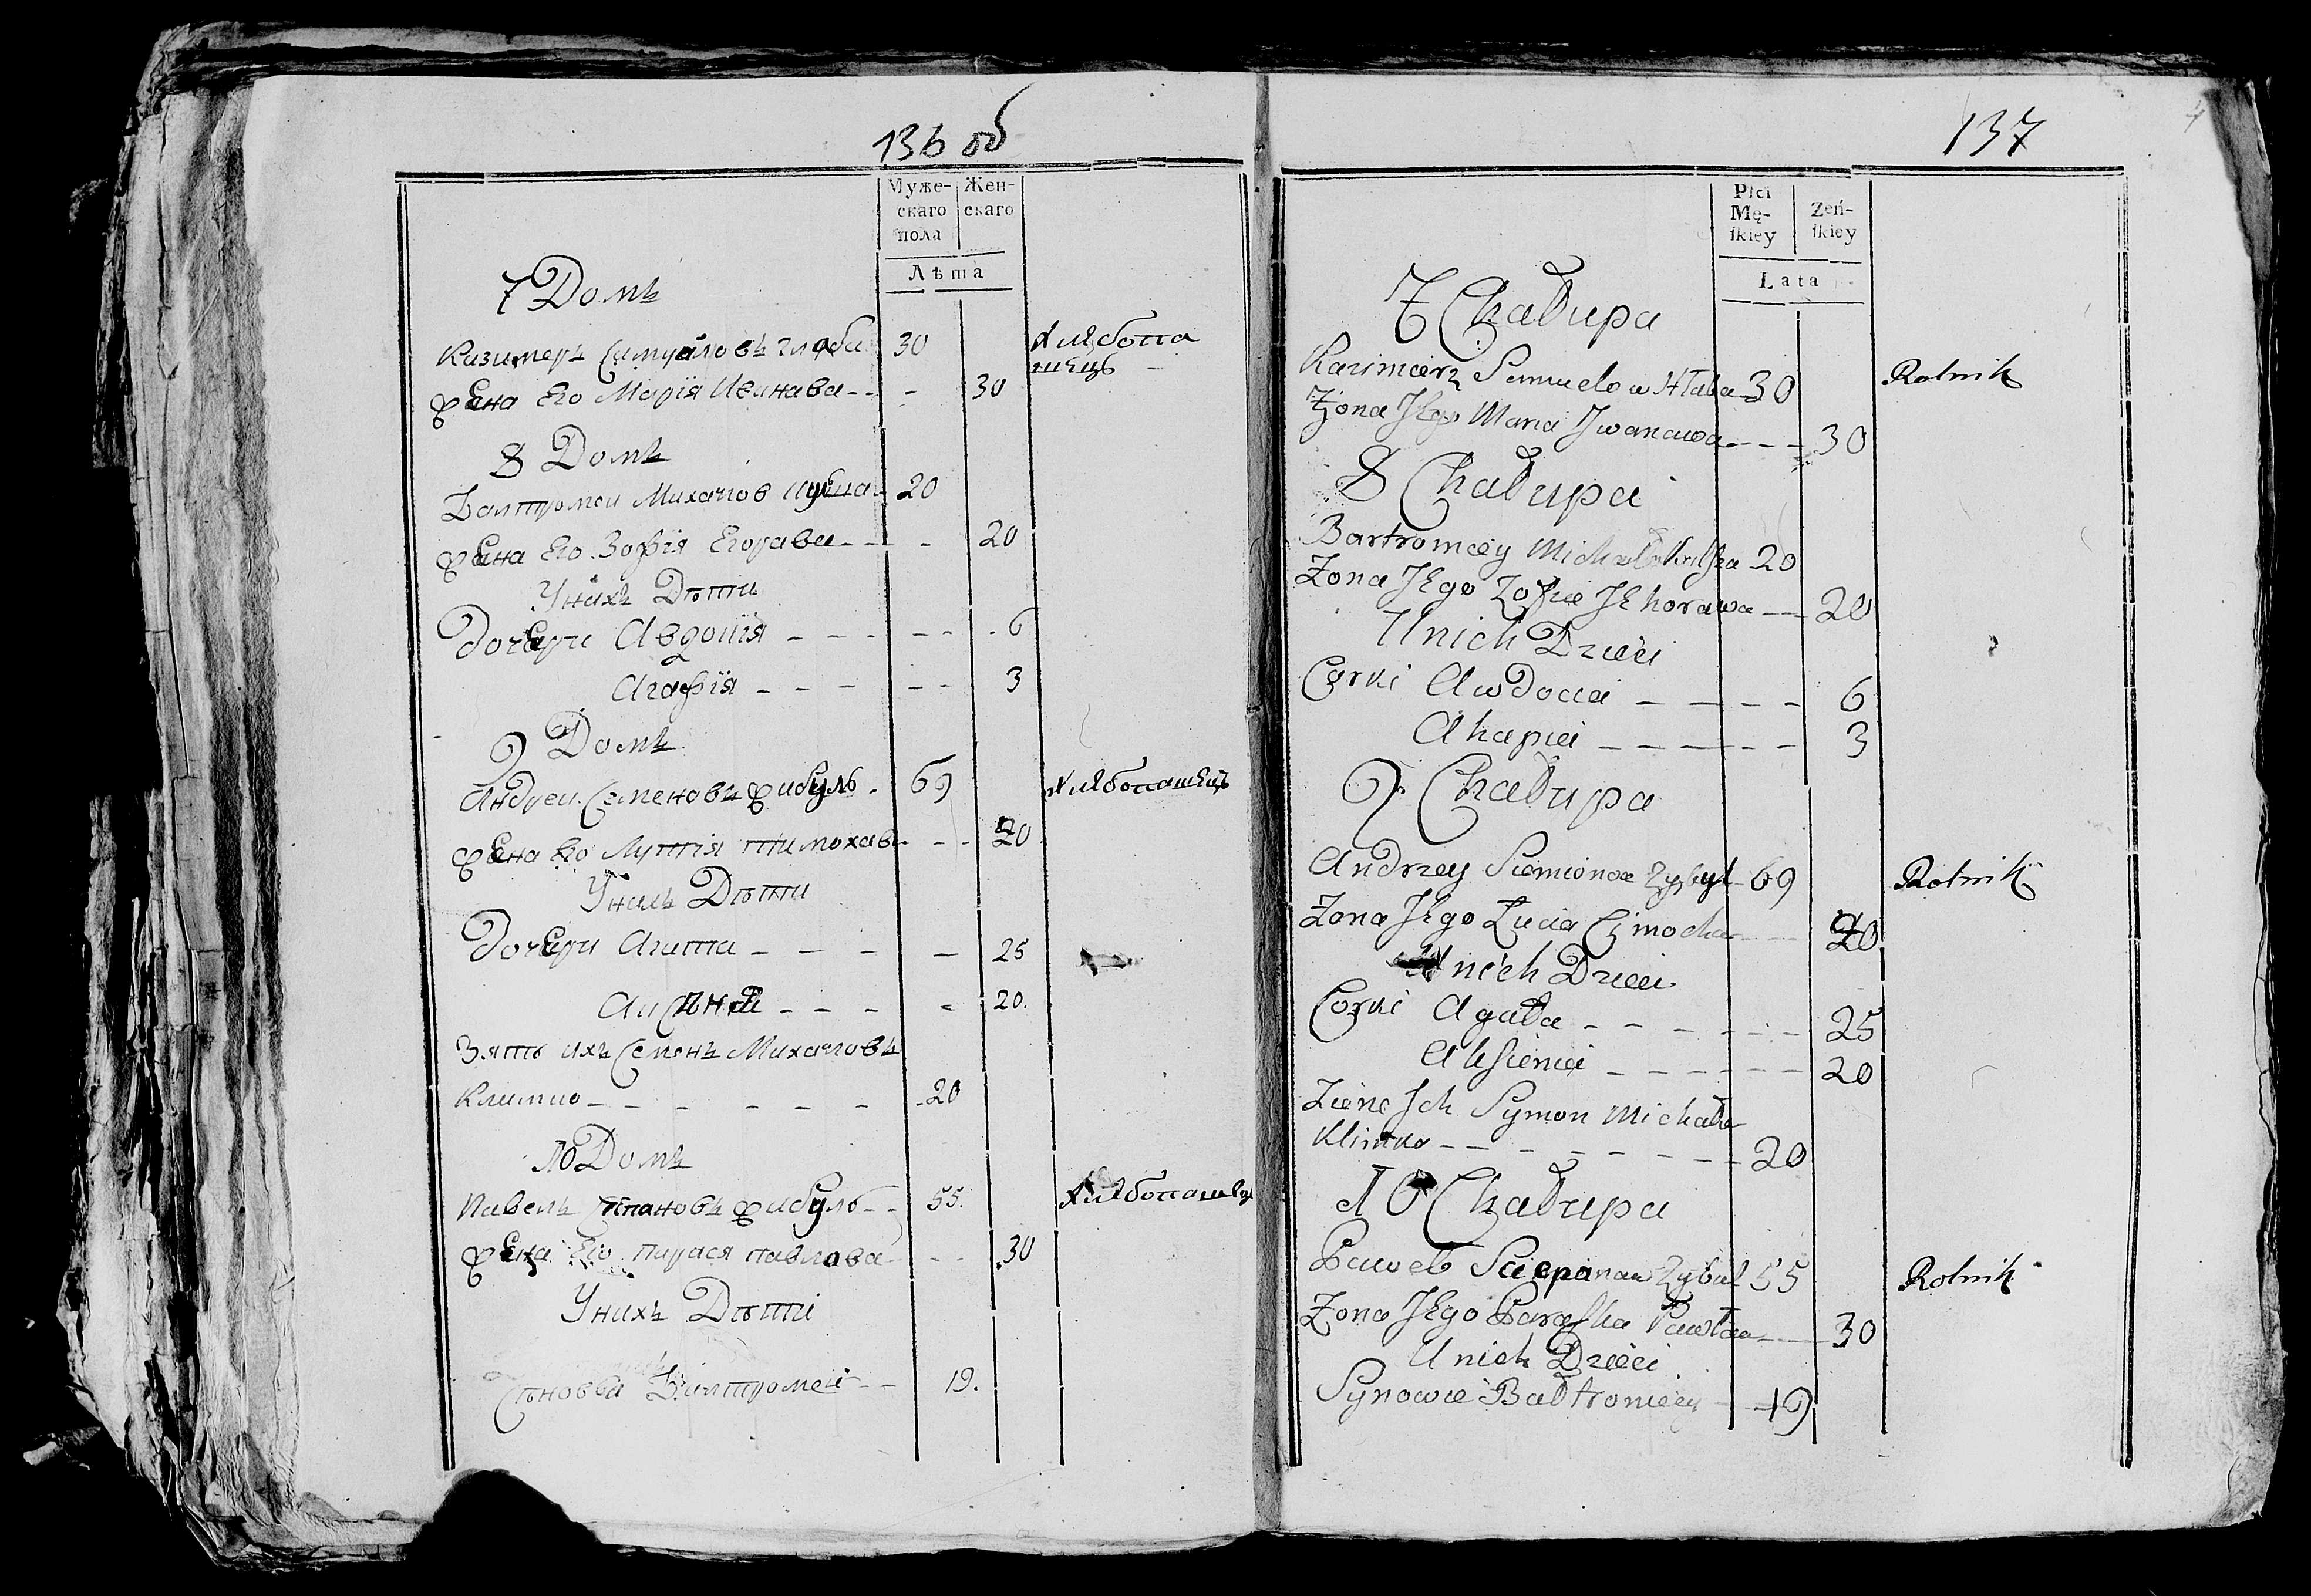 136 об
Муже-
скаго
пола
Жен-
скаго
Лѣта
7 Домъ
Казимеръ Самуйловъ Глаба 30 Хлѣбопа
шецъ
Жена Его Марія Иванава - - - 30
8 Домъ
Балтромеи Михайлов 20
Жена Его Зофія Егорава - - - 20
У нихъ Дѣти
Дочери Авдотія - - - - - - 6
Агафія - - - - - 3
9 Домъ
Андреи Семеновъ Жибуль - 69 Хлѣбопашецъ
Жена Его Луция Тимохава - - - 20
У нихъ Дѣти
Дочери Агата - - - - 25
Аксѣния - - - - 20.
Зять ихъ Семенъ Михайловъ
Климко - - - - - - - 20
10 Домъ
Павелъ Степановъ Жибуль - - 55. Хлѣбопашецъ
Жена Его Парася Павлова - - - 30
У нихъ Дѣти
Сыновья Балтромей - - 19.
137
Płci
Mę-
ſkiey
Zeń-
ſkiey
Lata
7 Chałupa
Kazimierz Samuelow Hłaba 30 Rolnik
Zona Jego Maria Jwanawa - - - 30
8 Chałupa
Bartromiey 20
Zona Jego Zofia Jehorawa - - 20
U nich Dzieci
Corki Awdocia - - - - - 6
Ahapia - - - - - - 3
9 Chałupa
Andrzey Siemionow Zybul 69 Rolnik
Zona Jego Łucia Cimocha - - - 20
U nich Dzieci
Corki Agata - - - - - - 25
Akſienia - - - - - - 20
Zięnc Jch Symon Michała
Klimko - - - - - - - - 20
10 Chałupa
Paweł Sciepanaw Zybul 55 Rolnik
Zona Jego Paraſka Pawława - - - 30
U nich Dzieci
Synowie Bałtromiey - 19